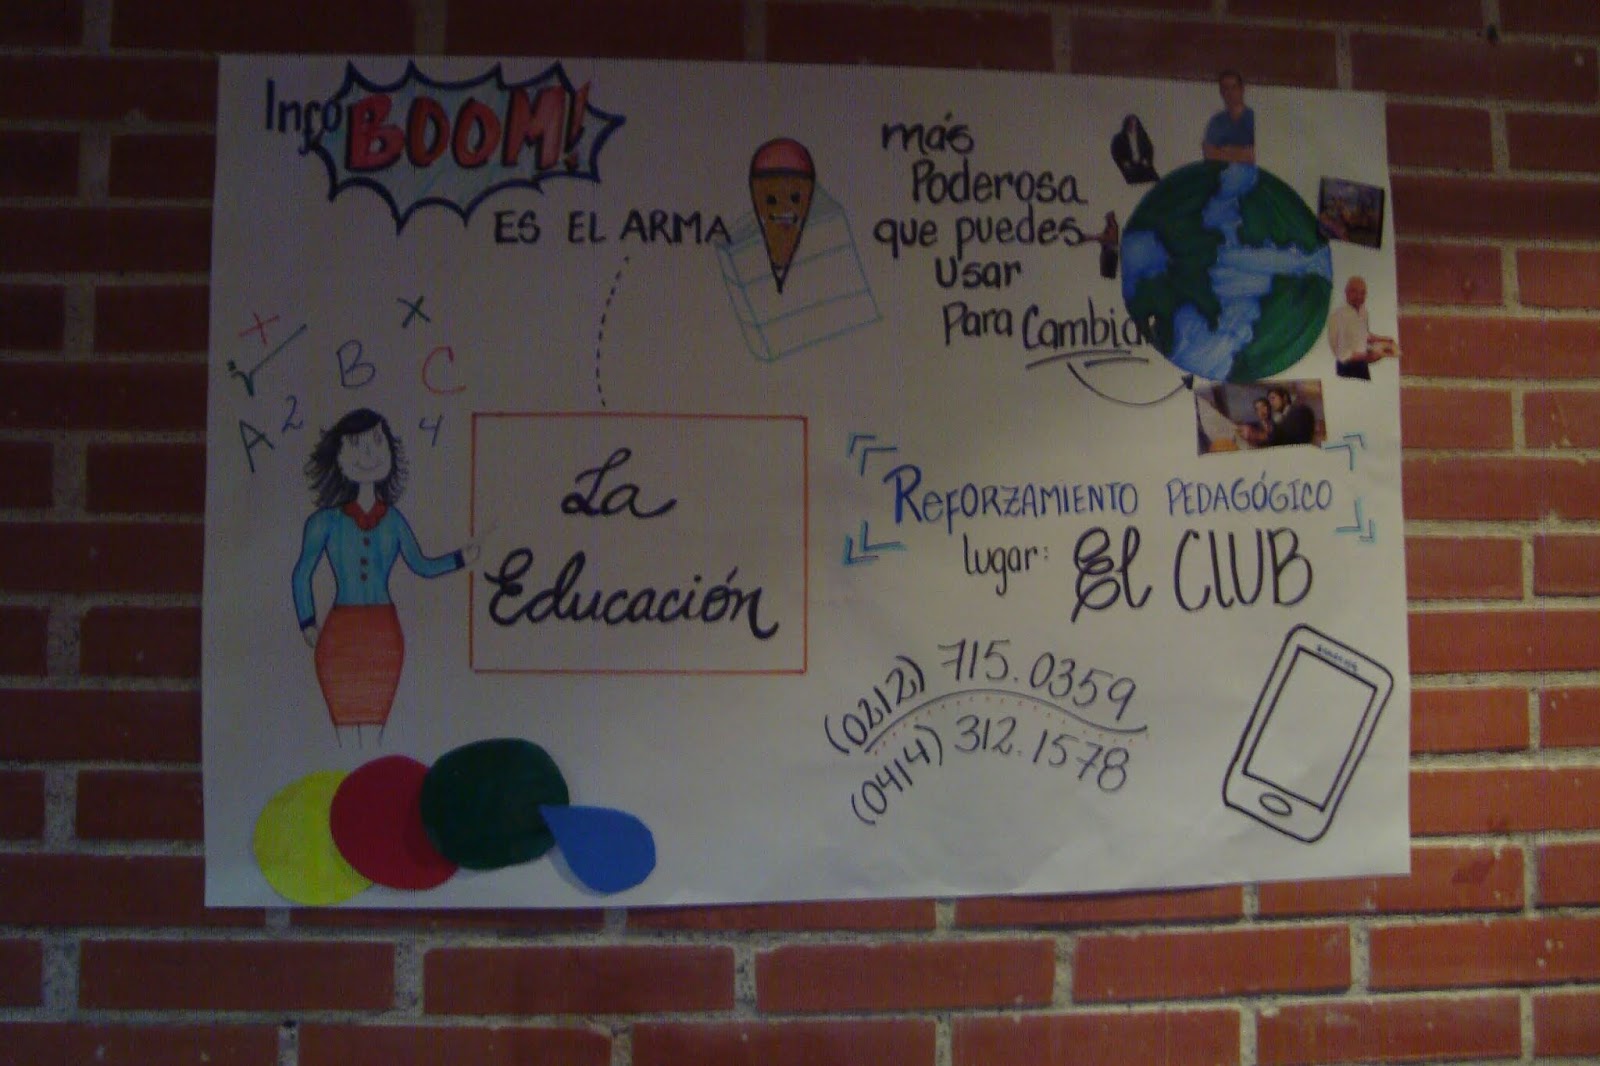 Info
BOOM!
ES EL ARMA
más
Poderosa
que puedes
Usar
Para Cambiar
X
B
C
A
2
4
La
Educación
REFORZAMIENTO PEDAGÓGICO
lugar: El CLUB
(0212) 715.0359
(0414) 312.1578